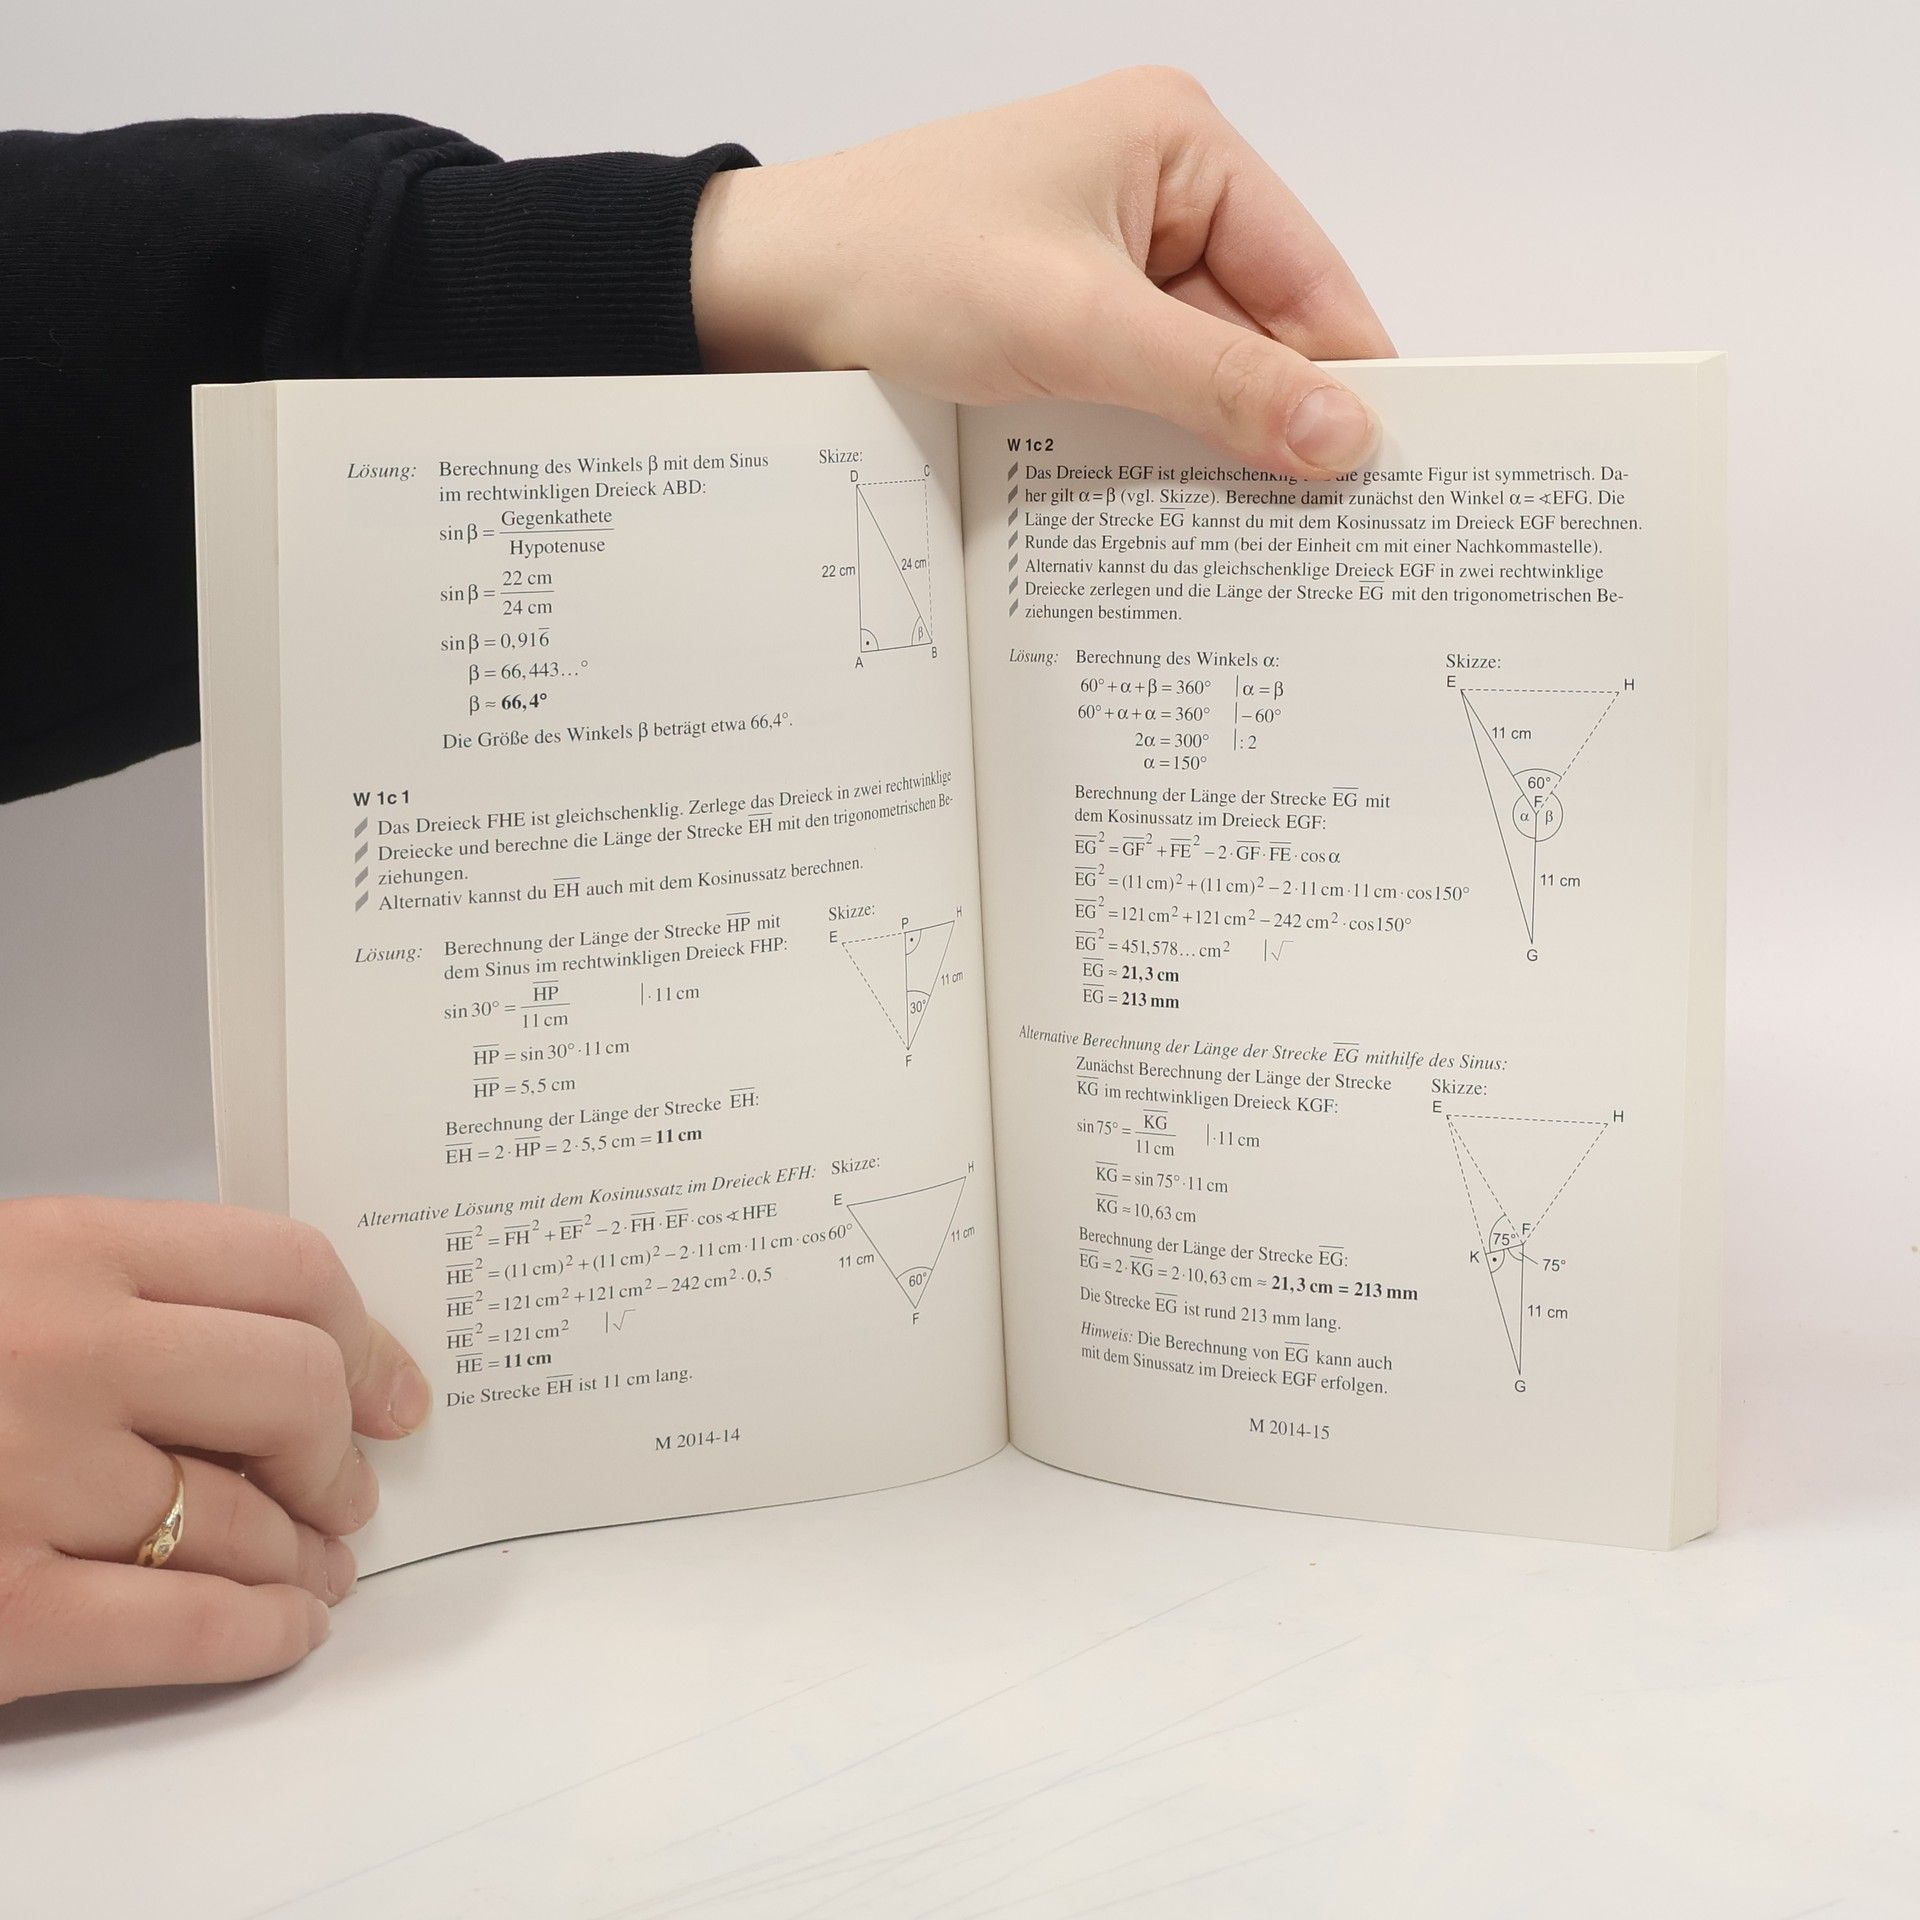 Lösung: Berechnung des Winkels β mit dem Sinus
im rechtwinkligen Dreieck ABD:
sin β = Gegenkathete / Hypotenuse
sin β = 22 cm / 24 cm
sin β = 0,916̅
β = 66,443...°
β ≈ 66,4°
Die Größe des Winkels β beträgt etwa 66,4°.
Skizze:
D C
22 cm 24 cm
β
A B
W 1c 1
Das Dreieck FHE ist gleichschenklig. Zerlege das Dreieck in zwei rechtwinklige
Dreiecke und berechne die Länge der Strecke E̅H̅ mit den trigonometrischen Be-
ziehungen.
Alternativ kannst du E̅H̅ auch mit dem Kosinussatz berechnen.
Lösung: Berechnung der Länge der Strecke H̅P̅ mit
dem Sinus im rechtwinkligen Dreieck FHP:
sin 30° = H̅P̅ / 11 cm | · 11 cm
H̅P̅ = sin 30° · 11 cm
H̅P̅ = 5,5 cm
Berechnung der Länge der Strecke E̅H̅:
E̅H̅ = 2 · H̅P̅ = 2 · 5,5 cm = 11 cm
Skizze:
E P H
11 cm
30°
F
Alternative Lösung mit dem Kosinussatz im Dreieck EFH:
H̅E̅² = F̅H̅² + E̅F̅² − 2 · F̅H̅ · E̅F̅ · cos ∢ HFE
H̅E̅² = (11 cm)² + (11 cm)² − 2 · 11 cm · 11 cm · cos 60°
H̅E̅² = 121 cm² + 121 cm² − 242 cm² · 0,5
H̅E̅² = 121 cm² | √
H̅E̅ = 11 cm
Die Strecke E̅H̅ ist 11 cm lang.
Skizze:
E H
11 cm 11 cm
60°
F
M 2014-14
W 1c 2
Das Dreieck EGF ist die gesamte Figur ist symmetrisch. Da-
her gilt α = β (vgl. Skizze). Berechne damit zunächst den Winkel α = ∢EFG. Die
Länge der Strecke E̅G̅ kannst du mit dem Kosinussatz im Dreieck EGF berechnen.
Runde das Ergebnis auf mm (bei der Einheit cm mit einer Nachkommastelle).
Alternativ kannst du das gleichschenklige Dreieck EGF in zwei rechtwinklige
Dreiecke zerlegen und die Länge der Strecke E̅G̅ mit den trigonometrischen Be-
ziehungen bestimmen.
Lösung: Berechnung des Winkels α:
60° + α + β = 360° | α = β
60° + α + α = 360° | − 60°
2α = 300° | : 2
α = 150°
Berechnung der Länge der Strecke E̅G̅ mit
dem Kosinussatz im Dreieck EGF:
E̅G̅² = G̅F̅² + F̅E̅² − 2 · G̅F̅ · F̅E̅ · cos α
E̅G̅² = (11 cm)² + (11 cm)² − 2 · 11 cm · 11 cm · cos 150°
E̅G̅² = 121 cm² + 121 cm² − 242 cm² · cos 150°
E̅G̅² = 451,578... cm² | √
E̅G̅ ≈ 21,3 cm
E̅G̅ = 213 mm
Skizze:
E H
11 cm
60°
F
α β
11 cm
G
Alternative Berechnung der Länge der Strecke E̅G̅ mithilfe des Sinus:
Zunächst Berechnung der Länge der Strecke
K̅G̅ im rechtwinkligen Dreieck KGF:
sin 75° = K̅G̅ / 11 cm | · 11 cm
K̅G̅ = sin 75° · 11 cm
K̅G̅ ≈ 10,63 cm
Berechnung der Länge der Strecke E̅G̅:
E̅G̅ = 2 · K̅G̅ = 2 · 10,63 cm ≈ 21,3 cm = 213 mm
Die Strecke E̅G̅ ist rund 213 mm lang.
Hinweis: Die Berechnung von E̅G̅ kann auch
mit dem Sinussatz im Dreieck EGF erfolgen.
Skizze:
E H
F
75°
K 75°
11 cm
G
M 2014-15